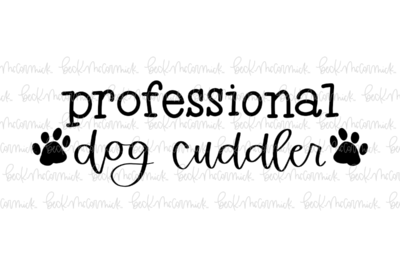 professional
dog cuddler